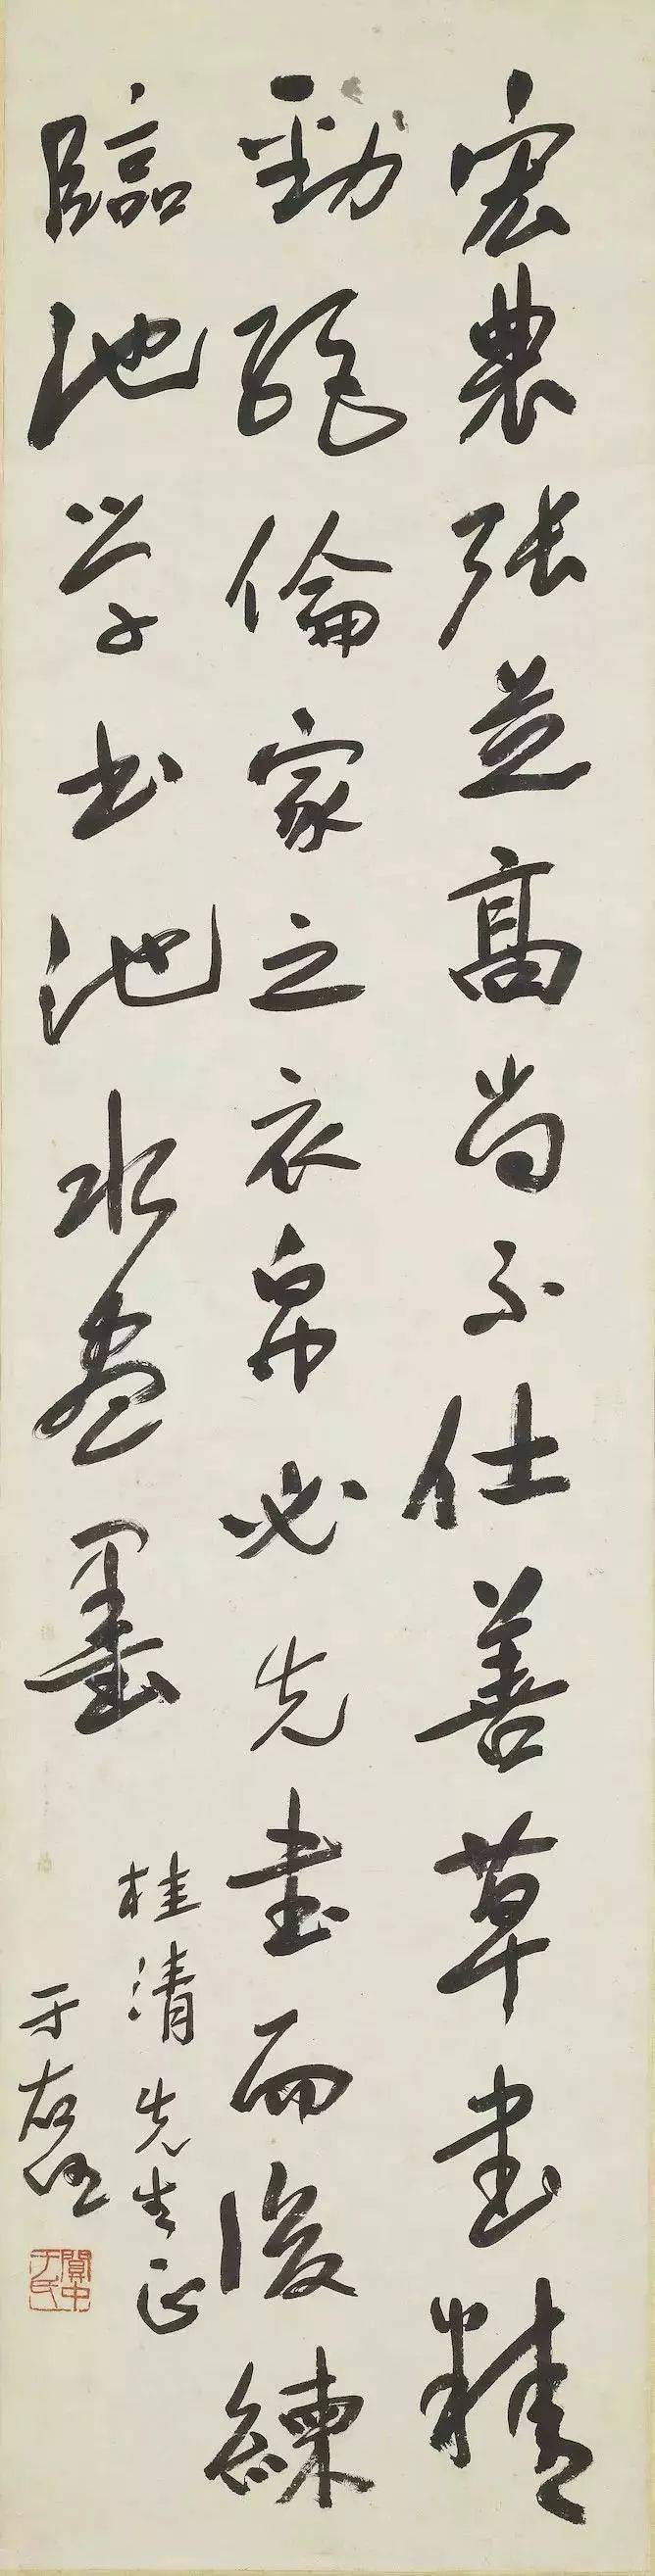 宏農張芝高尚不仕善草書精
勁絕倫家之衣帛必先書而後練
臨池學書池水盡墨
桂清先生正
于右任
關中于氏